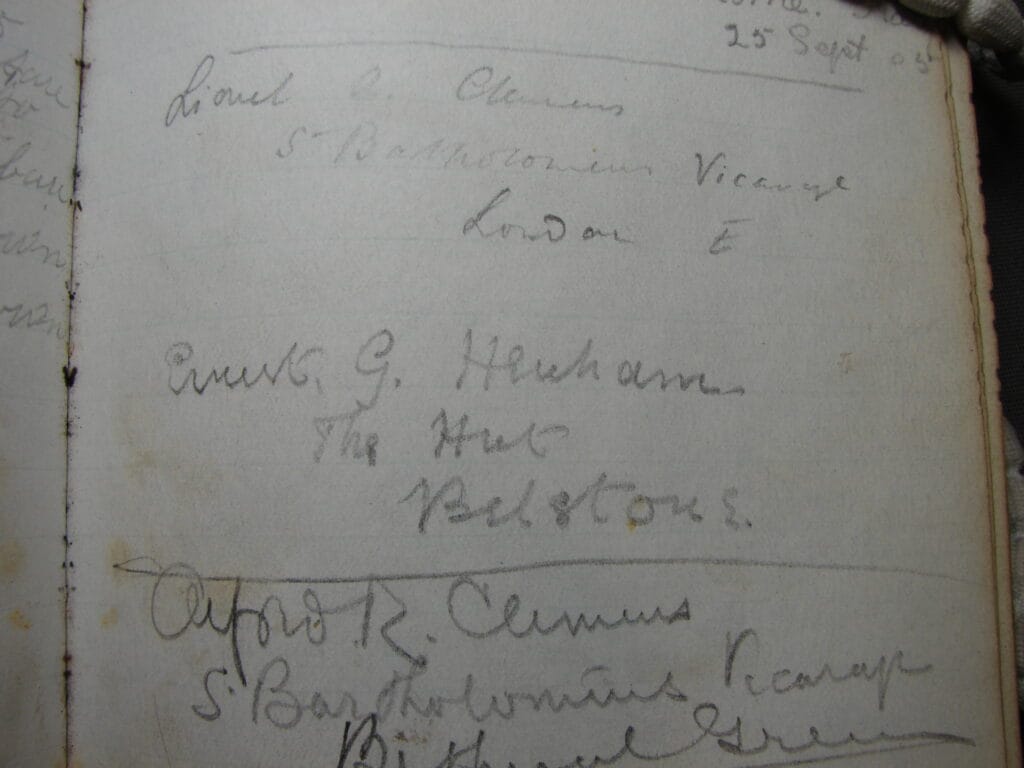 25 Sept 05
Lionel C. Clemens
St Bartholomews Vicarage
London E
Ernest. G. Henham
The Hut
Belstone.
Alfred R. Clemens
St Bartholomews Vicarage
Bethnal Green